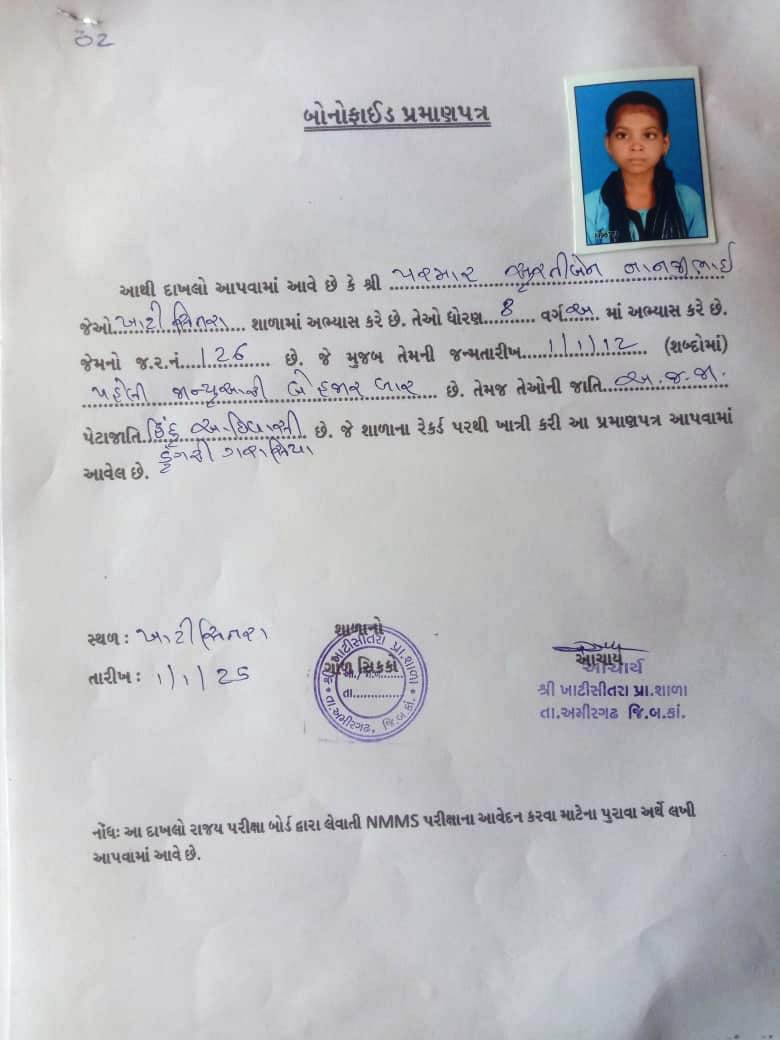 02
બોનોફાઈડ પ્રમાણપત્ર
આથી દાખલો આપવામાં આવે છે કે શ્રી પરમાર નાનજીભાઈ
જેઓ ખાટીસિતરા શાળામાં અભ્યાસ કરે છે. તેઓ ધોરણ 8 વર્ગ અ માં અભ્યાસ કરે છે.
જેમનો જ.ર.નં. 126 છે. જે મુજબ તેમની જન્મતારીખ 1/1/12 (શબ્દોમાં)
પહેલી જાન્યુઆરી બે હજાર બાર છે. તેમજ તેઓની જાતિ અ.જ.જા.
પેટાજાતિ હિંદુ છે. જે શાળાના રેકર્ડ પરથી ખાત્રી કરી આ પ્રમાણપત્ર આપવામાં
ડુંગરી ગરાસિયા
આવેલ છે.
સ્થળ : ખાટીસિતરા
તારીખ : 1/1/25
શાળાનો
ગોળ સિક્કો
શ્રી ખાટીસીતરા પ્રા.શાળા
તા.
તા.અમીરગઢ, જિ.બ.કાં.
આચાર્ય
આચાર્ય
શ્રી ખાટીસીતરા પ્રા.શાળા
તા.અમીરગઢ જિ.બ.કાં.
નોંધઃ આ દાખલો રાજય પરીક્ષા બોર્ડ દ્વારા લેવાતી NMMS પરીક્ષાના આવેદન કરવા માટેના પુરાવા અર્થે લખી
આપવામાં આવે છે.